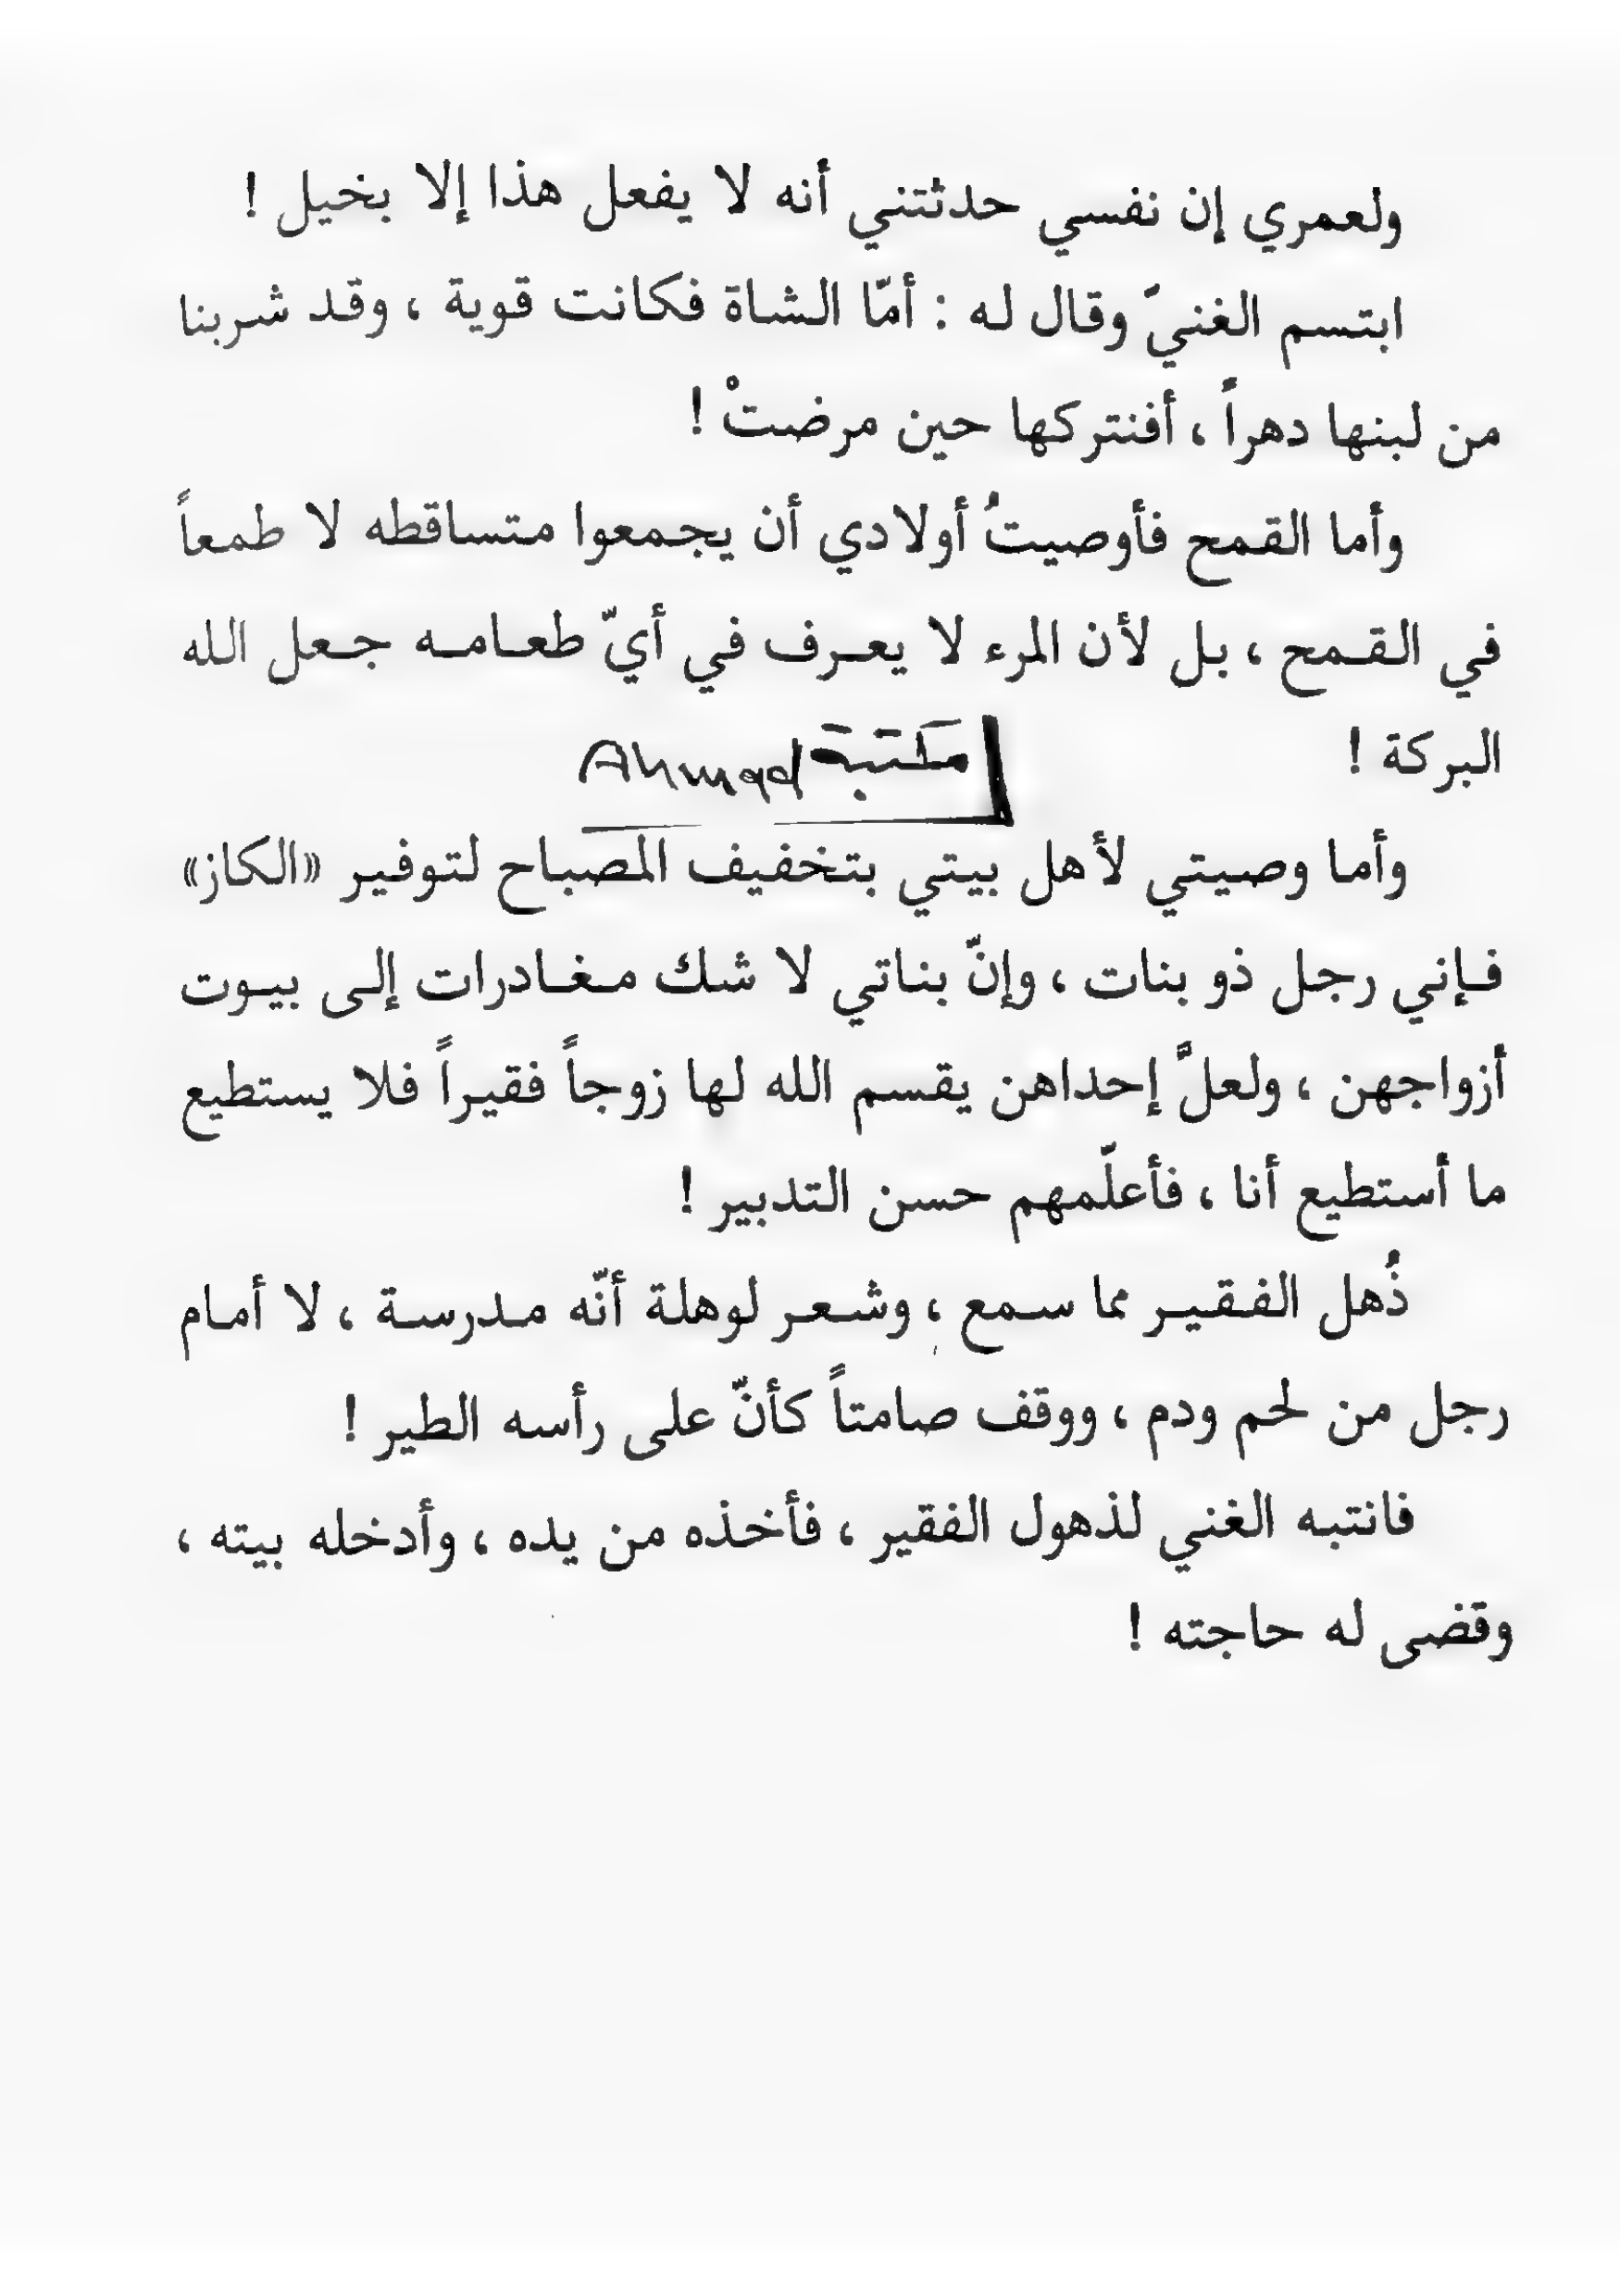 ولعمري إن نفسي حدثتني أنه لا يفعل هذا إلا بخيل !
ابتسم الغنيّ وقال له : أمّا الشاة فكانت قوية ، وقد شربنا
من لبنها دهراً ، أفنتركها حين مرضتْ !
وأما القمح فأوصيتُ أولادي أن يجمعوا متساقطه لا طمعاً
في القمح ، بل لأن المرء لا يعرف في أيّ طعامه جعل الله
البركة !
مكتبة Ahmad
وأما وصيتي لأهل بيتي بتخفيف المصباح لتوفير «الكاز»
فإني رجل ذو بنات ، وإنّ بناتي لا شك مغادرات إلى بيوت
أزواجهن ، ولعلَّ إحداهن يقسم الله لها زوجاً فقيراً فلا يستطيع
ما أستطيع أنا ، فأعلّمهم حسن التدبير !
ذُهل الفقير مما سمع ، وشعر لوهلة أنّه مدرسة ، لا أمام
رجل من لحم ودم ، ووقف صامتاً كأنّ على رأسه الطير !
فانتبه الغني لذهول الفقير ، فأخذه من يده ، وأدخله بيته ،
وقضى له حاجته !